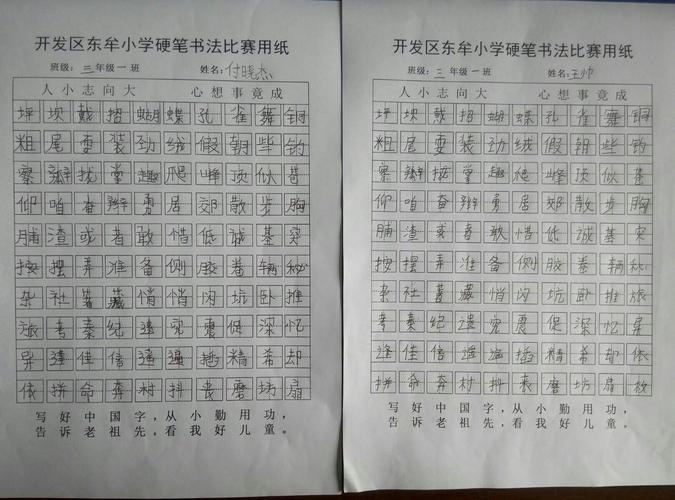 开发区东牟小学硬笔书法比赛用纸
班级：三年级一班 姓名：付晓杰
人小志向大 心想事竟成
坪坝戴招蝴蝶孔雀舞铜
粗尾耍装劲绒假朝些钓
察瓣拢掌趣爬峰顶似苍
仰咱奋辫勇居郊散步胸
脯渣或者敢惜低诚基突
按摆弄准备侧胶卷辆秘
杂社蓄藏悄悄闪坑卧推
旅考秦纪究震促深忆
异佳信插精希却
依拼命奔村抖丧磨坊扇
写好中国字，从小勤用功，
告诉老祖先，看我好儿童。
开发区东牟小学硬笔书法比赛用纸
班级：三年级一班 姓名：王帅
人小志向大 心想事竟成
坪坝戴招蝴蝶孔雀舞铜
粗尾耍装劲绒假朝些钓
察瓣拢掌趣爬峰顶似苍
仰咱奋辫勇居郊散步胸
脯渣或者敢惜低诚基突
按摆弄准备侧胶卷辆秘
杂社蓄藏悄闪坑卧推旅
考秦纪究震促深忆异
佳信插精希却依
拼命奔村抖丧磨坊扇枚
写好中国字，从小勤用功，
告诉老祖先，看我好儿童。